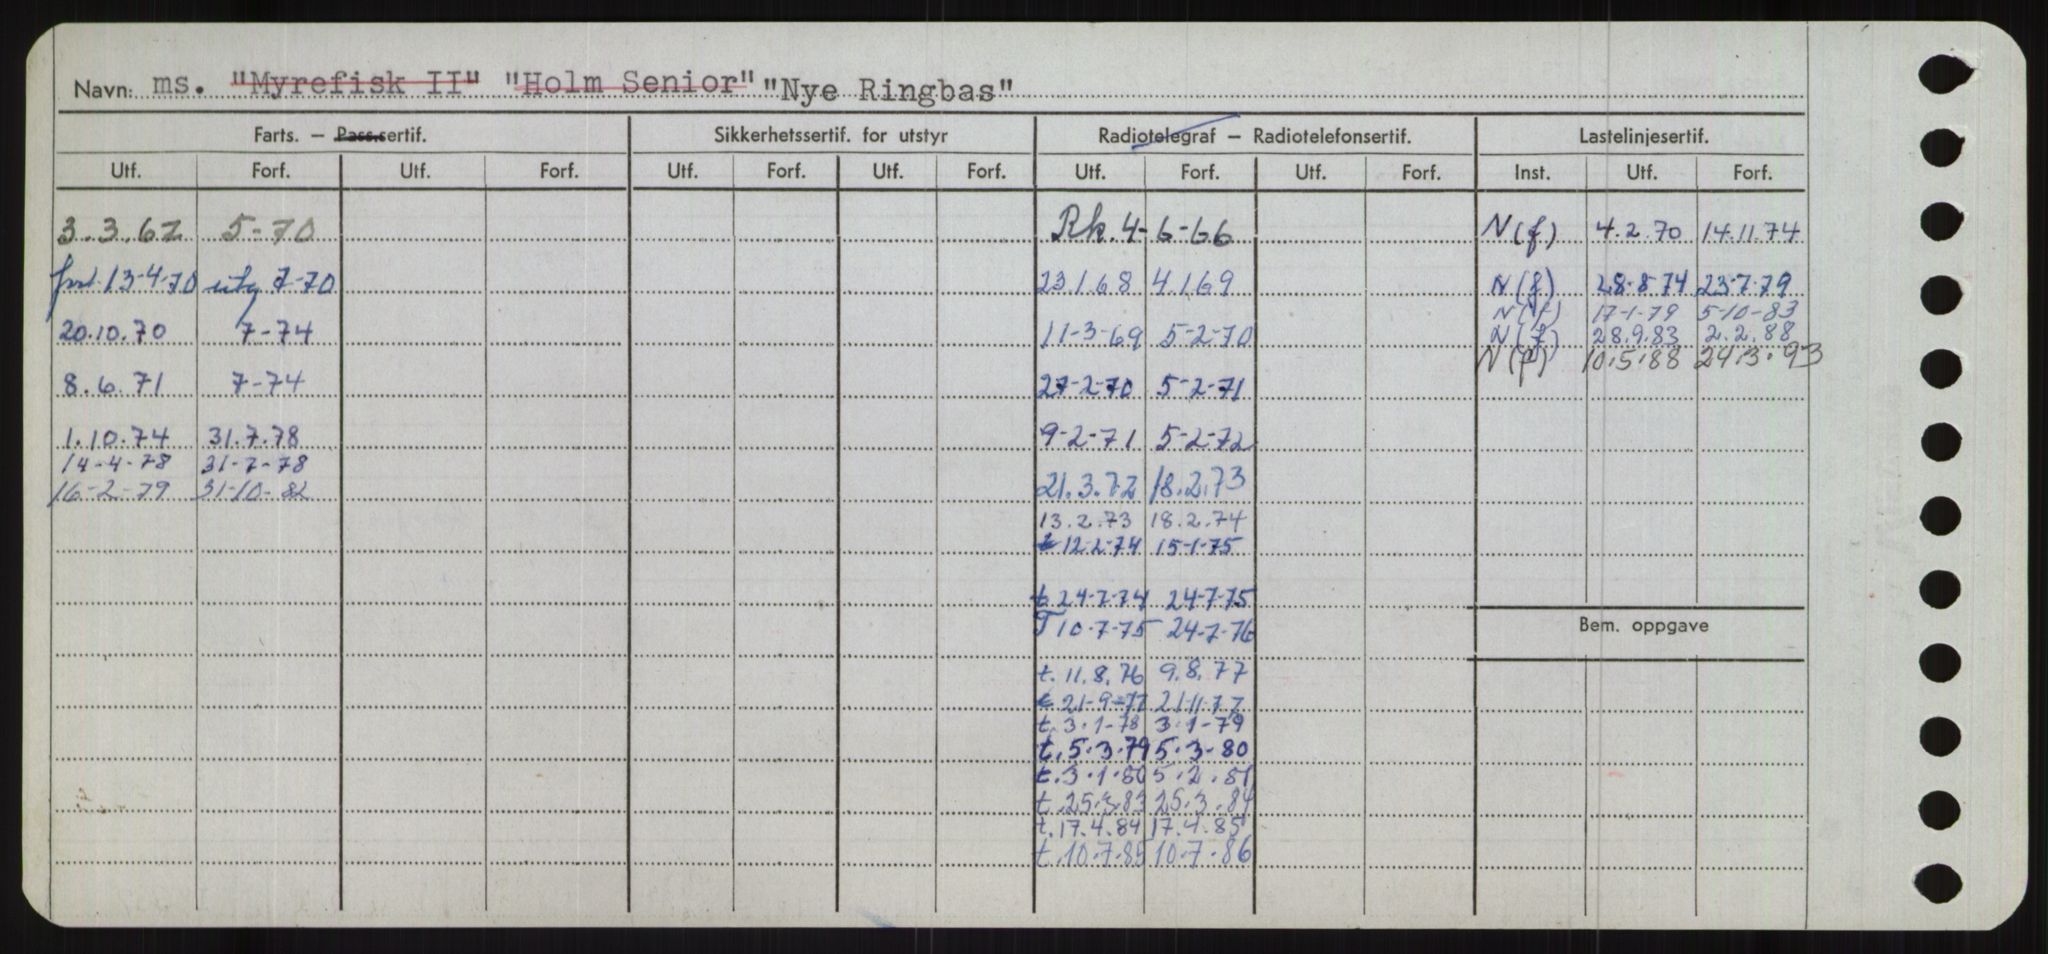 Navn: ms. "Myrefisk II" "Holm Senior" "Nye Ringbas"
Farts. — Pass.sertif. Sikkerhetssertif. for utstyr Radiotelegraf — Radiotelefonsertif. Lastelinjesertif.
Utf. Forf. Utf. Forf. Utf. Forf. Utf. Forf. Utf. Forf. Utf. Forf. Inst. Utf. Forf.
3.3.62 5-70 Rk. 4-6-66 N(f) 4.2.70 14.11.74
13-4-70 7-70 23.1.68 4.1.69 N(f) 28-8-74 23-7-79
N(f) 17-1-79 5-10-83
20.10.70 7-74 11-3-69 5-2-70 N(f) 28.9.83 2.2.88
N(f) 10.5.88 24.3.93
8.6.71 7-74 27-2-70 5-2-71
1.10.74 31.7.78 9-2-71 5-2-72
14-4-78 31-7-78
16-2-79 31-10-82 21.3.72 18.2.73
13.2.73 18.2.74
t 12-2-74 15-1-75
t. 24-7-74 24-7-75
T 10-7-75 24-7-76
Bem. oppgave
t. 11.8.76 9.8.77
t 21-9-77 21-11-77
t. 3-1-78 3-1-79
t. 5.3.79 5.3-80
t. 3.1.80 5.2.81
t. 25.3.83 25.3.84
t. 17.4.84 17.4.85
t. 10.7.85 10.7.86